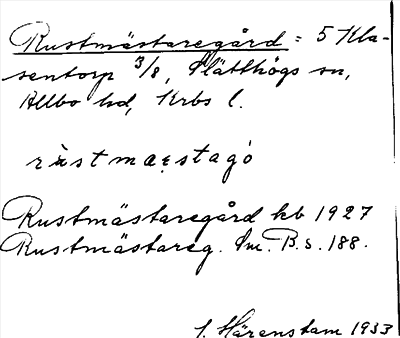 Rustmästaregård = 5 Kla-
sentorp 3/8, Slätthögs sn,
Allbo hd, Krbs l.
rùstmæstagó
Rustmästaregård kb 1927
Rustmästareg. Sm. B. s. 188.
I. Härenstam 1933